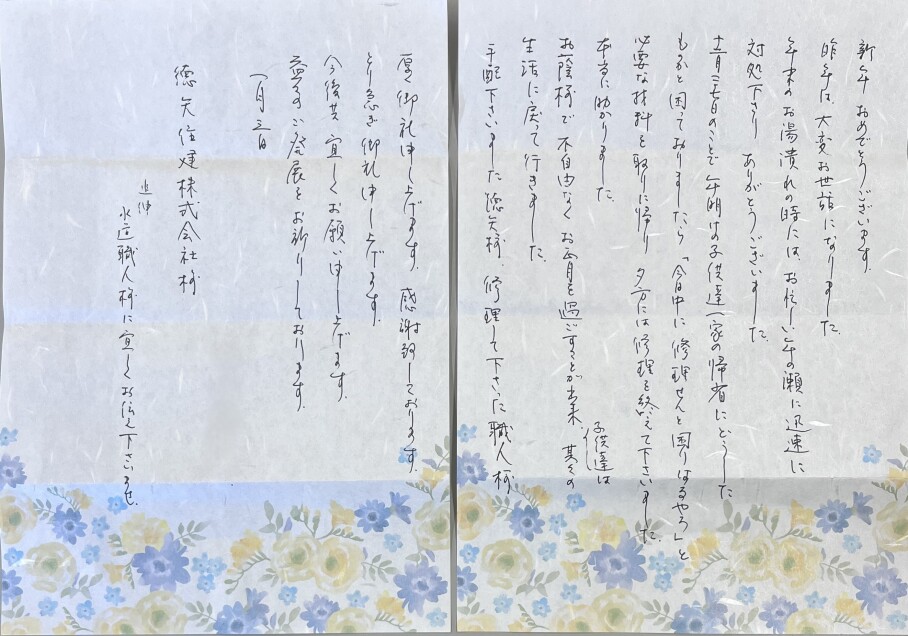 新年おめでとうございます。
昨年は、大変お世話になりました
年末のお湯漬れの時には、お忙しい年の瀬に迅速に
対処下さり ありがとうございました。
十二月二十七日のことで年明けの子供達一家の帰省にどうした
ものかと困っておりましたら「今日中に修理せんと困りはるやろ」と
必要な材料を取りに帰り 夕方には修理を終えて下さいました。
本当に助かりました。
お蔭様で不自由なくお正月を過ごすことが出来、子供達は其々の
生活に戻って行きました。
手配下さいました徳矢様、修理して下さった職人様
厚く御礼申し上げます。感謝致しております。
とり急ぎ御礼申し上げます。
今後共宜しくお願い申し上げます。
益々のご発展をお祈りしております。
一月三日
徳矢住建株式会社様
追伸
水道職人様に宜しくお伝え下さいませ。